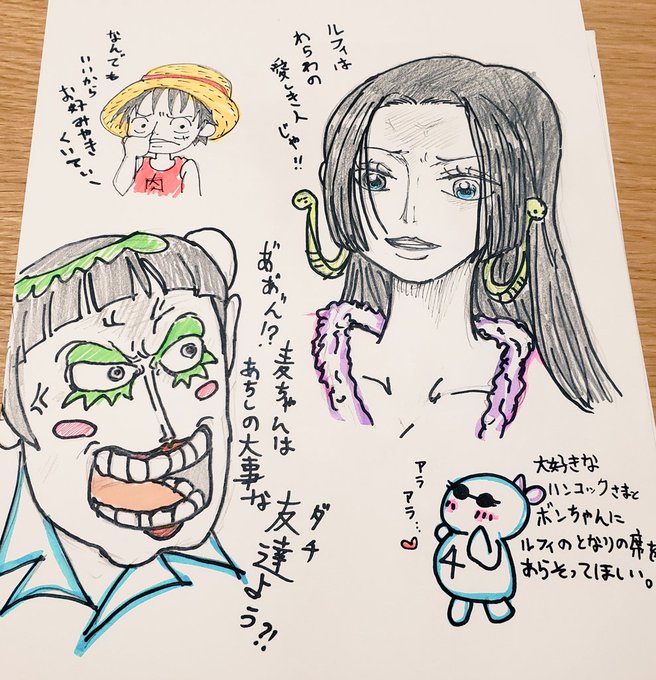 ルフィは
わらわの
愛しき人
じゃ!!
なんでも
いいから
お好みやき
くいてぃ〜
あぁん!?
麦ちゃんは
あちしの大事な
友達よう?!
ダチ
肉
アラ
アラ…
4
大好きな
ハンコックさまと
ボンちゃんに
ルフィのとなりの席を
あらそってほしい。